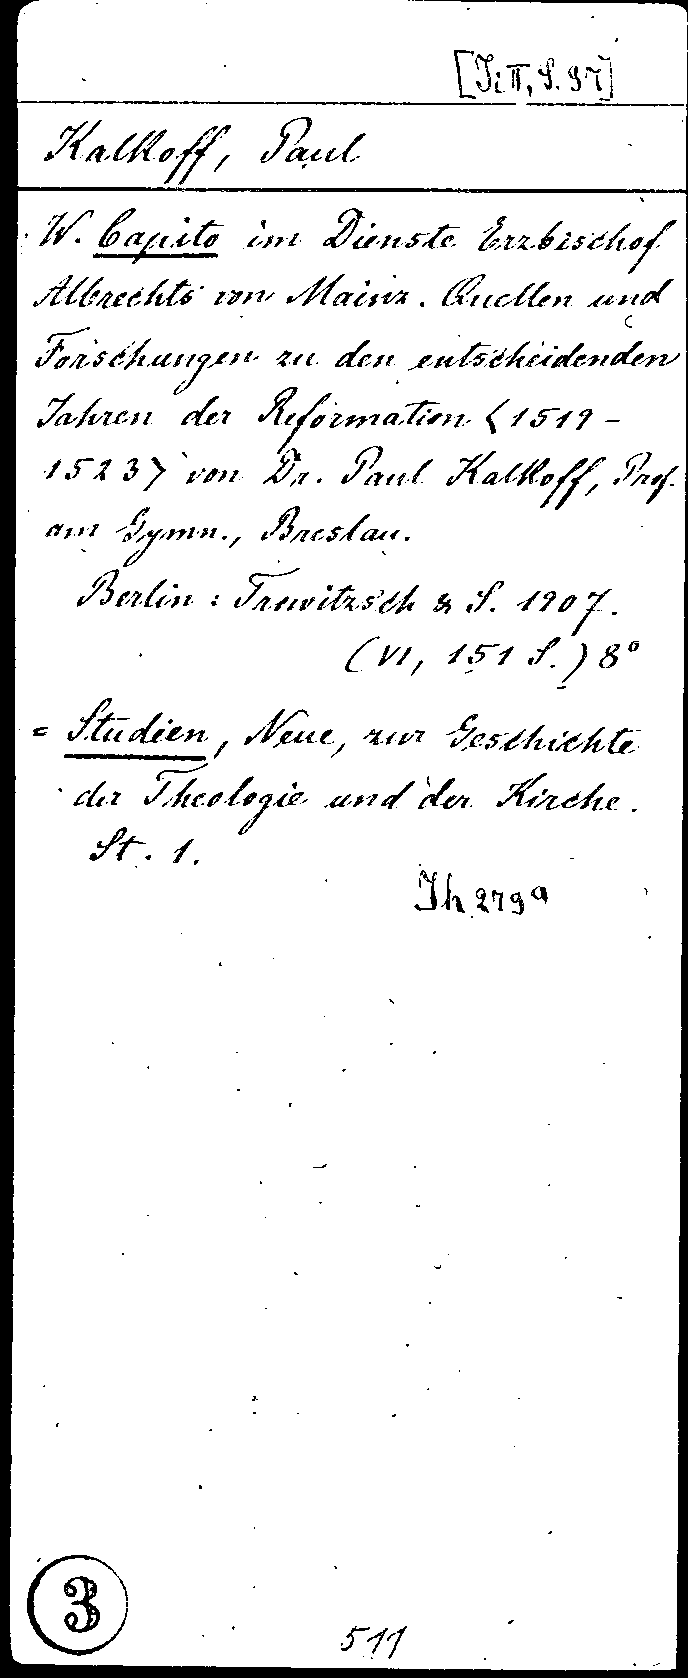 [J: II, S. 97]
Kalkoff, Paul
W. Capito im Dienste Erzbischof
Albrechts von Mainz. Quellen und
Forschungen zu den entscheidenden
Jahren der Reformation <1519-
1523> von Dr. Paul Kalkoff, Prof.
am Gymn., Breslau.
Berlin: Trowitzsch & S. 1907.
(VI, 151 S.) 8°
= Studien, Neue, zur Geschichte
der Theologie und der Kirche.
St. 1.
Jh 279a
3
511